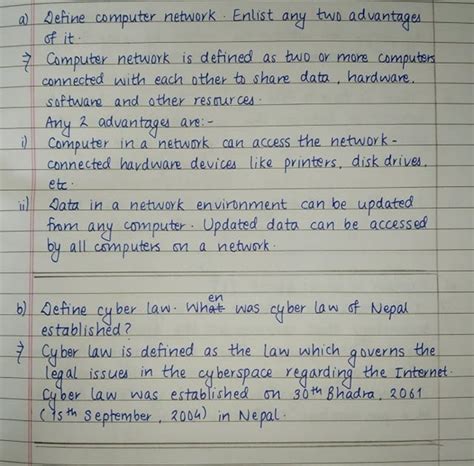 a) Define computer network. Enlist any two advantages
of it.
⇒ Computer network is defined as two or more computers
connected with each other to share data, hardware,
software and other resources.
Any 2 advantages are:-
i) Computer in a network can access the network-
connected hardware devices like printers, disk drives,
etc.
ii) Data in a network environment can be updated
from any computer. Updated data can be accessed
by all computers on a network.
b) Define cyber law. When was cyber law of Nepal
established?
⇒ Cyber law is defined as the law which governs the
legal issues in the cyberspace regarding the Internet.
Cyber law was established on 30th Bhadra, 2061
(15th September, 2004) in Nepal.